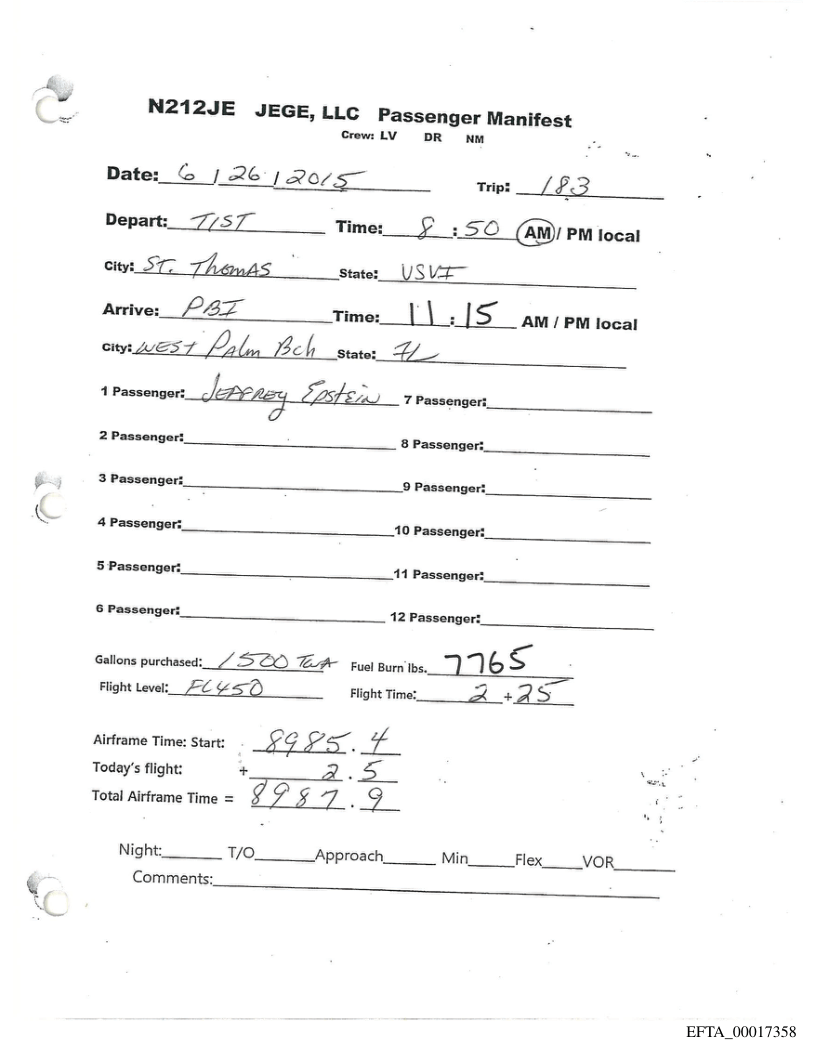 N212JE JEGE, LLC Passenger Manifest
Crew: LV DR NM
Date: 6 / 26 / 2015 Trip: 183
Depart: TIST Time: 8:50 AM / PM local
City: ST. THOMAS State: USVI
Arrive: PBI Time: 11:15 AM / PM local
City: WEST Palm Bch State: FL
1 Passenger: JEFFREY Epstein 7 Passenger:
2 Passenger: 8 Passenger:
3 Passenger: 9 Passenger:
4 Passenger: 10 Passenger:
5 Passenger: 11 Passenger:
6 Passenger: 12 Passenger:
Gallons purchased: 1500 Fuel Burn lbs. 7765
Flight Level: FL450 Flight Time: 2 + 25
Airframe Time: Start: 8985.4
Today's flight: + 2.5
Total Airframe Time = 8987.9
Night: T/O Approach Min Flex VOR
Comments:
EFTA_00017358